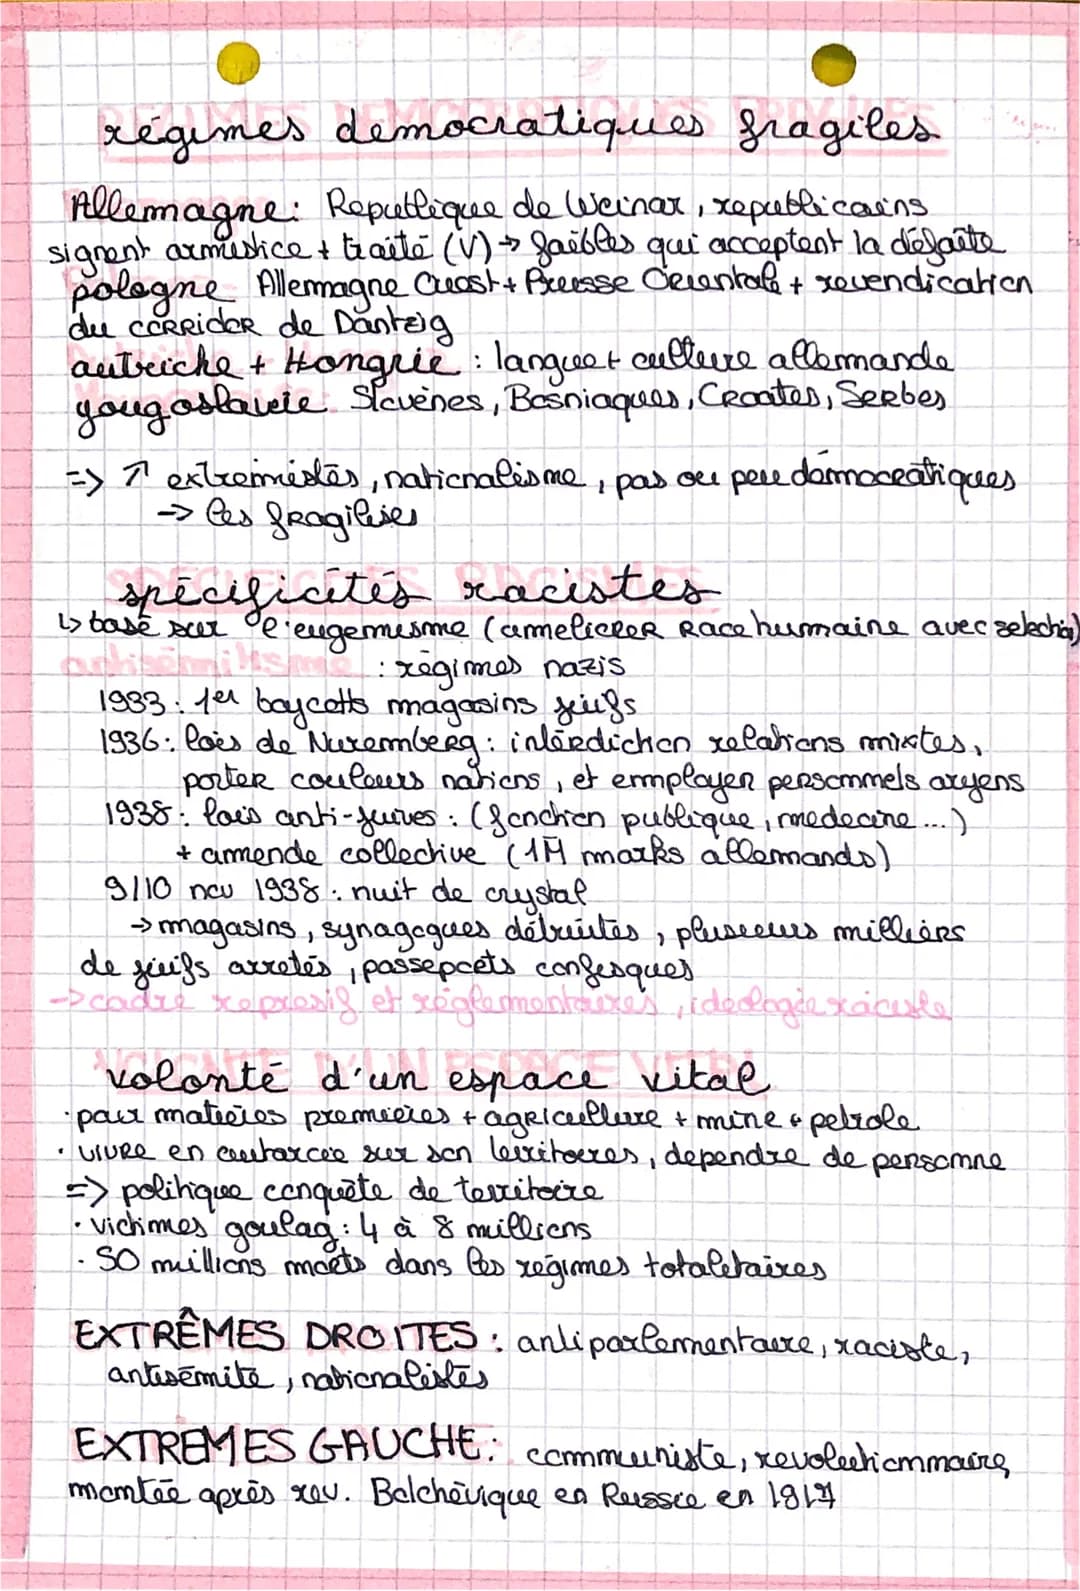 régimes démocratiques fragiles
Allemagne: Republique de Weinar, republicains
signent armistice + traité (V) → faibles qui acceptent la défaite
pologne Allemagne Ouest + Preusse Orientale + revendication
du corridor de Dantzig
autriche + Hongrie : langue + culture allemande
yougoslavie Slovènes, Bosniaques, Croates, Serbes
=> ↗ extremistes, nationalisme, pas ou peu démocratiques
→ les fragilises
spécificités racistes
↳ basé sur l'eugenisme (ameliorer race humaine avec selection)
antisémitisme : régimes nazis
1933 : 1er boycotts magasins juifs
1936 : lois de Nuremberg : interdiction relations mixtes,
porter couleurs nations, et employer personnels aryens
1938 : lois anti-juives : (fonction publique, medecine ...)
+ amende collective (1M marks allemands)
9/10 nov 1938 : nuit de crystal
→ magasins, synagogues détruites, plusieurs milliers
de juifs arretés, passeports confisqués
→ cadre represif et réglementaires, idéologie raciste
volonté d'un espace vital
· pour matieres premieres + agriculture + mine + petrole
· vivre en autarcie sur son territoires, dependre de personne
=> politique conquête de territoire
· victimes goulag : 4 à 8 millions
· 50 millions morts dans les régimes totalitaires
EXTRÊMES DROITES : antiparlementaire, raciste,
antisémite, nationalistes
EXTREMES GAUCHE : communiste, revolutionnaire
montée après rev. Bolchévique en Russie en 1917